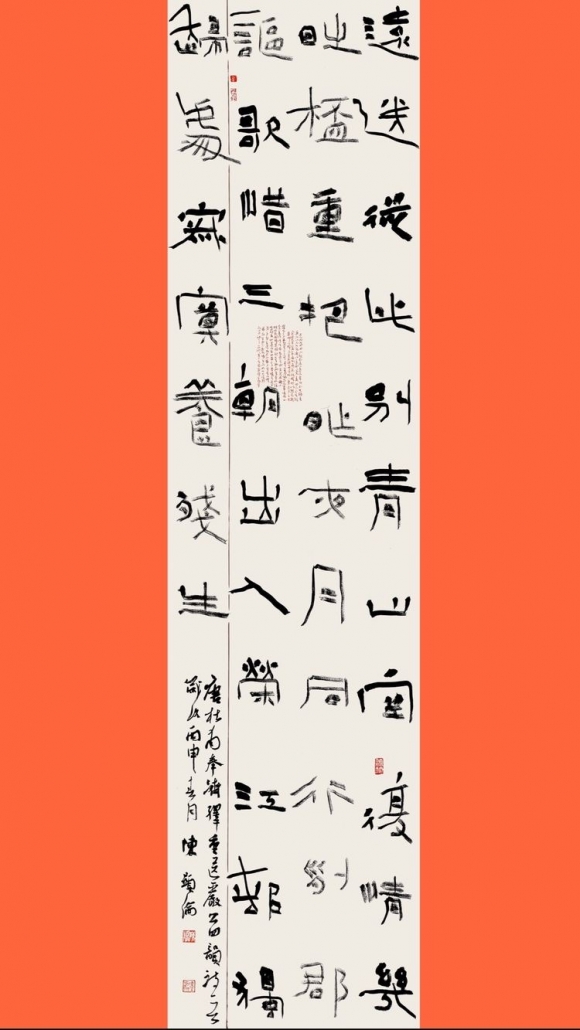 遠送從此別青山空復情幾
時桮重把昨夜月同行列郡
謳歌惜三朝出入榮江邨獨
歸處寂寞養殘生
唐杜甫奉濟驛重送嚴公四韻詩一首
歲次丙申春月陳顯倫